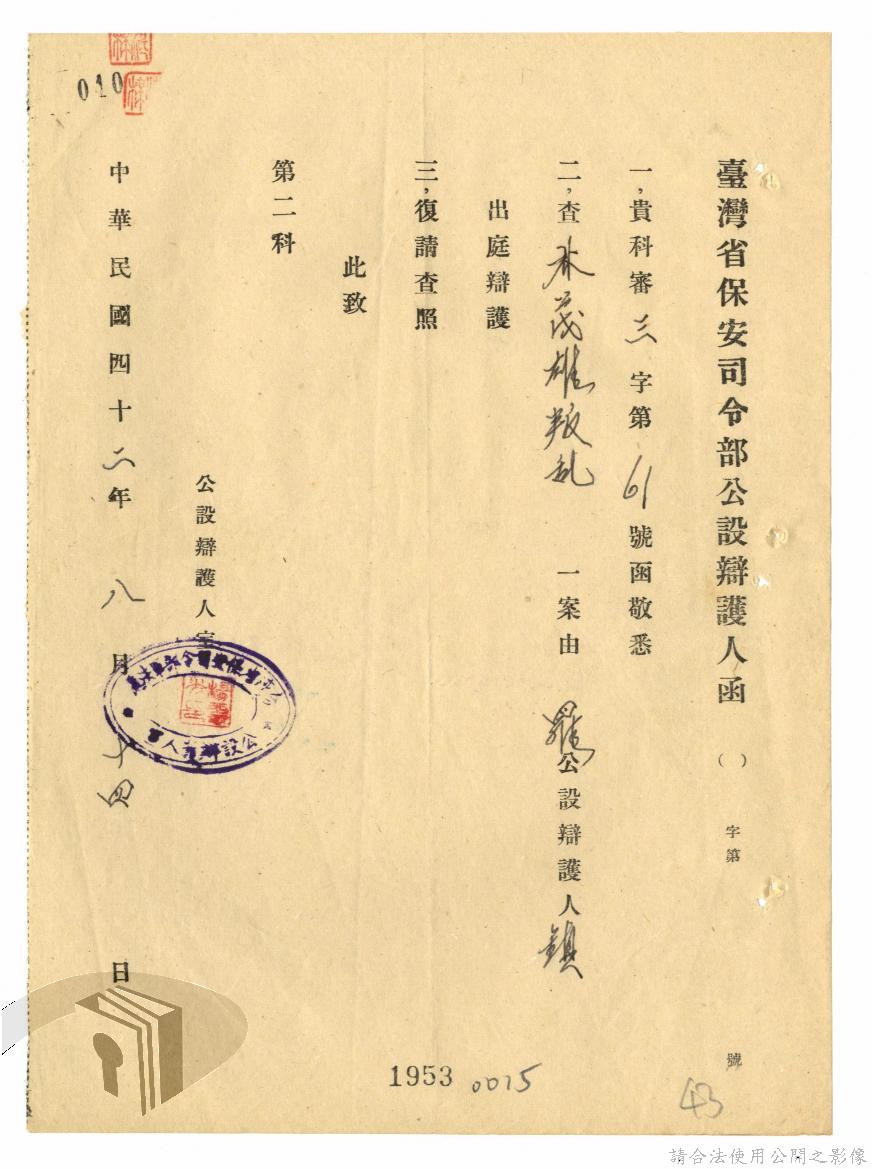 臺灣省保安司令部公設辯護人函 ( ) 字第 號
一,貴科審三字第61號函敬悉
二,查林茂雄叛乱一案由 公設辯護人鎮
出庭辯護
三,復請查照
此致
第二科
公設辯護人室
公設辯護人室
中華民國四十二年八月十四日
010
1953
0015
43
請合法使用公開之影像